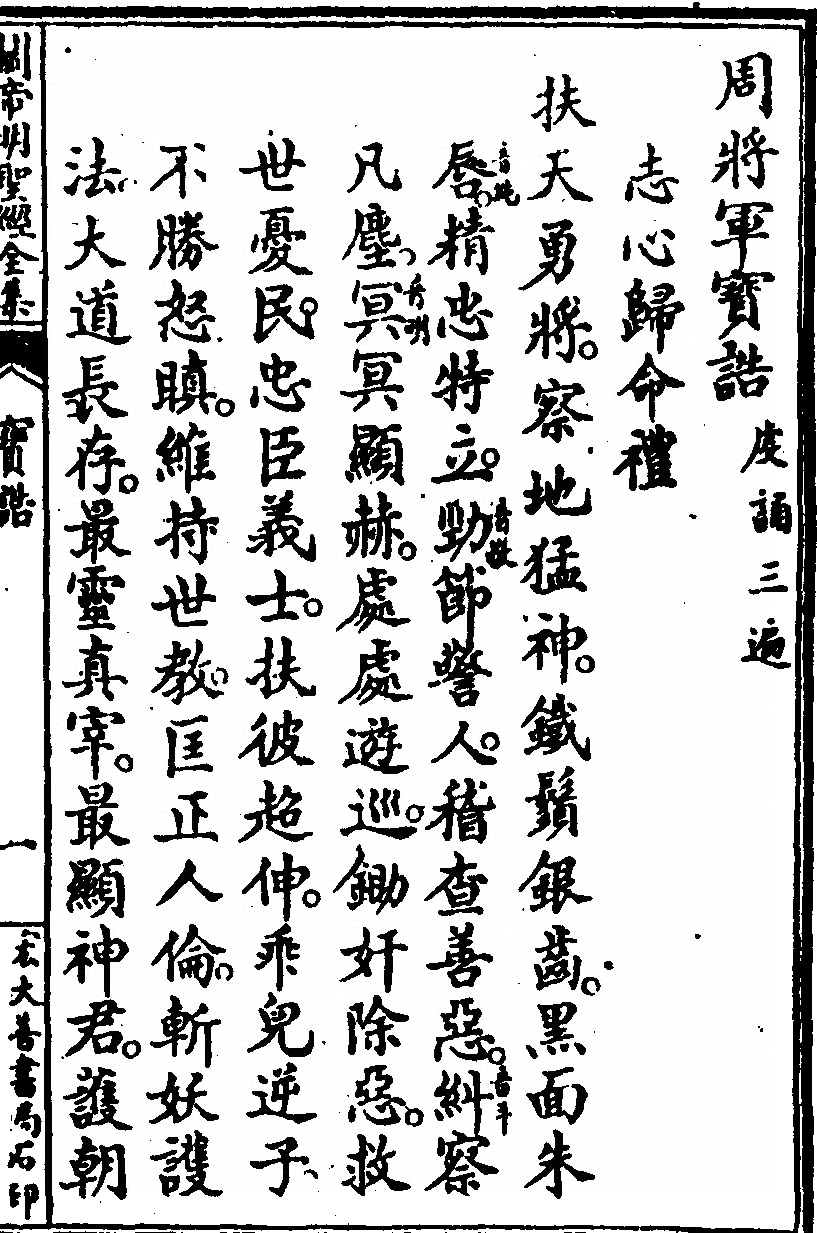 周將軍寶誥 虔誦三遍
志心歸命禮
扶天勇將。察地猛神。鐵鬚銀齒。黑面朱
唇音純精忠特立。勁音節警人。稽查善惡。糾音斗察
凡塵、冥音明冥顯赫。處處遊巡。鋤奸除惡。救
世憂民。忠臣義士。扶彼超伸。乖兒逆子、
不勝怒瞋。維持世教。匡正人倫。斬妖護
法、大道長存。最靈真宰。最顯神君。護朝
關帝明聖經全集 寶誥 一 宏大善書局石印